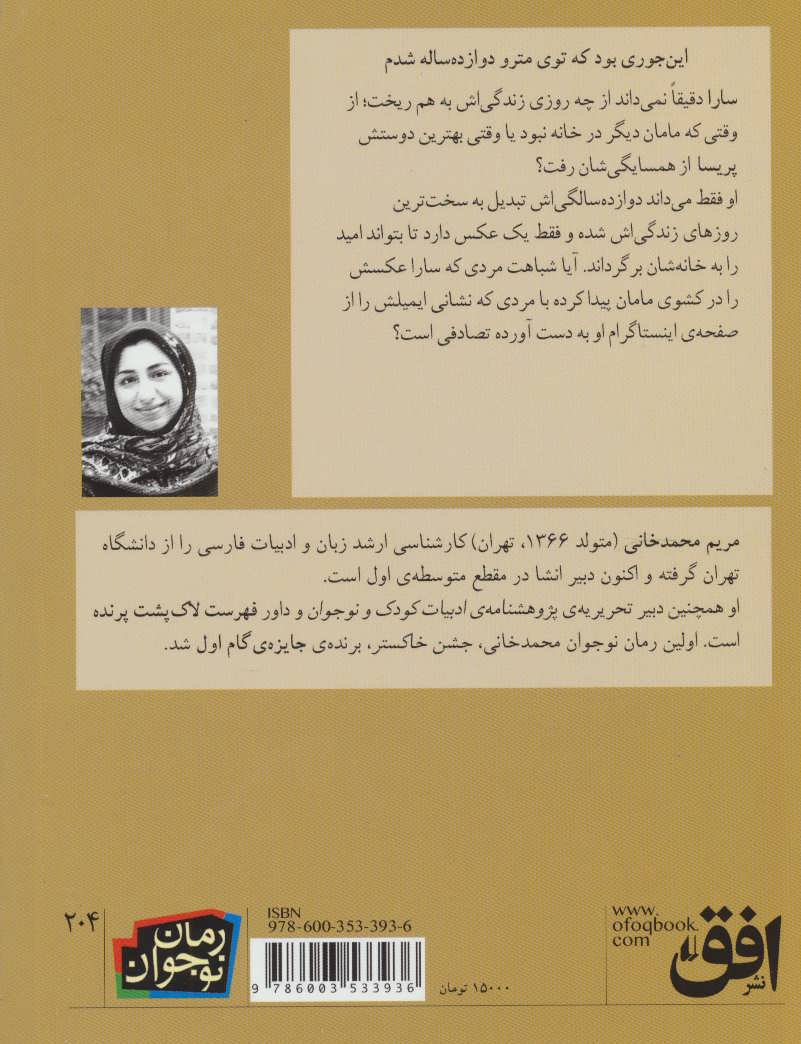 این‌جوری بود که توی مترو دوازده‌ساله شدم
سارا دقیقاً نمی‌داند از چه روزی زندگی‌اش به هم ریخت؛ از
وقتی که مامان دیگر در خانه نبود یا وقتی بهترین دوستش
پریسا از همسایگی‌شان رفت؟
او فقط می‌داند دوازده‌سالگی‌اش تبدیل به سخت‌ترین
روزهای زندگی‌اش شده و فقط یک عکس دارد تا بتواند امید
را به خانه‌شان برگرداند. آیا شباهت مردی که سارا عکسش
را در کشوی مامان پیدا کرده با مردی که نشانی ایمیلش را از
صفحه‌ی اینستاگرام او به دست آورده تصادفی است؟
مریم محمدخانی (متولد ۱۳۶۶، تهران) کارشناسی ارشد زبان و ادبیات فارسی را از دانشگاه
تهران گرفته و اکنون دبیر انشا در مقطع متوسطه‌ی اول است.
او همچنین دبیر تحریریه‌ی پژوهشنامه‌ی ادبیات کودک و نوجوان و داور فهرست لاک‌پشت پرنده
است. اولین رمان نوجوان محمدخانی، جشن خاکستر، برنده‌ی جایزه‌ی گام اول شد.
www.
ofoqbook.
com
نشر افق
ISBN
978-600-353-393-6
9 786003 533936
۱۵۰۰۰ تومان
رمان
نوجوان
۲۰۴